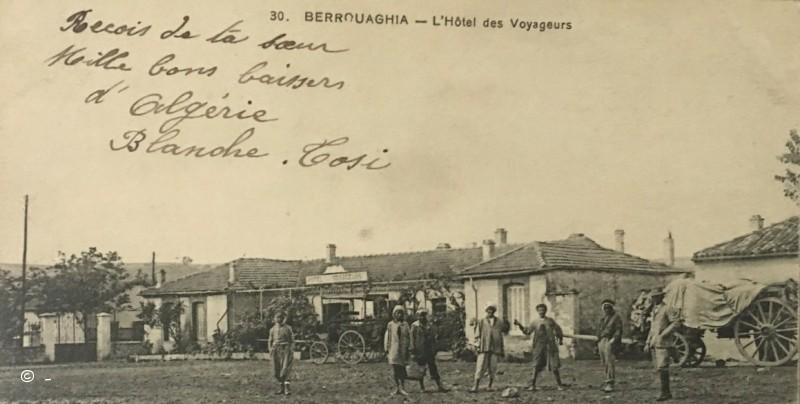 30. BERROUAGHIA — L'Hôtel des Voyageurs
Recois de ta sœur
Mille bons baisers
d'Algérie
Blanche . Tosi
© -